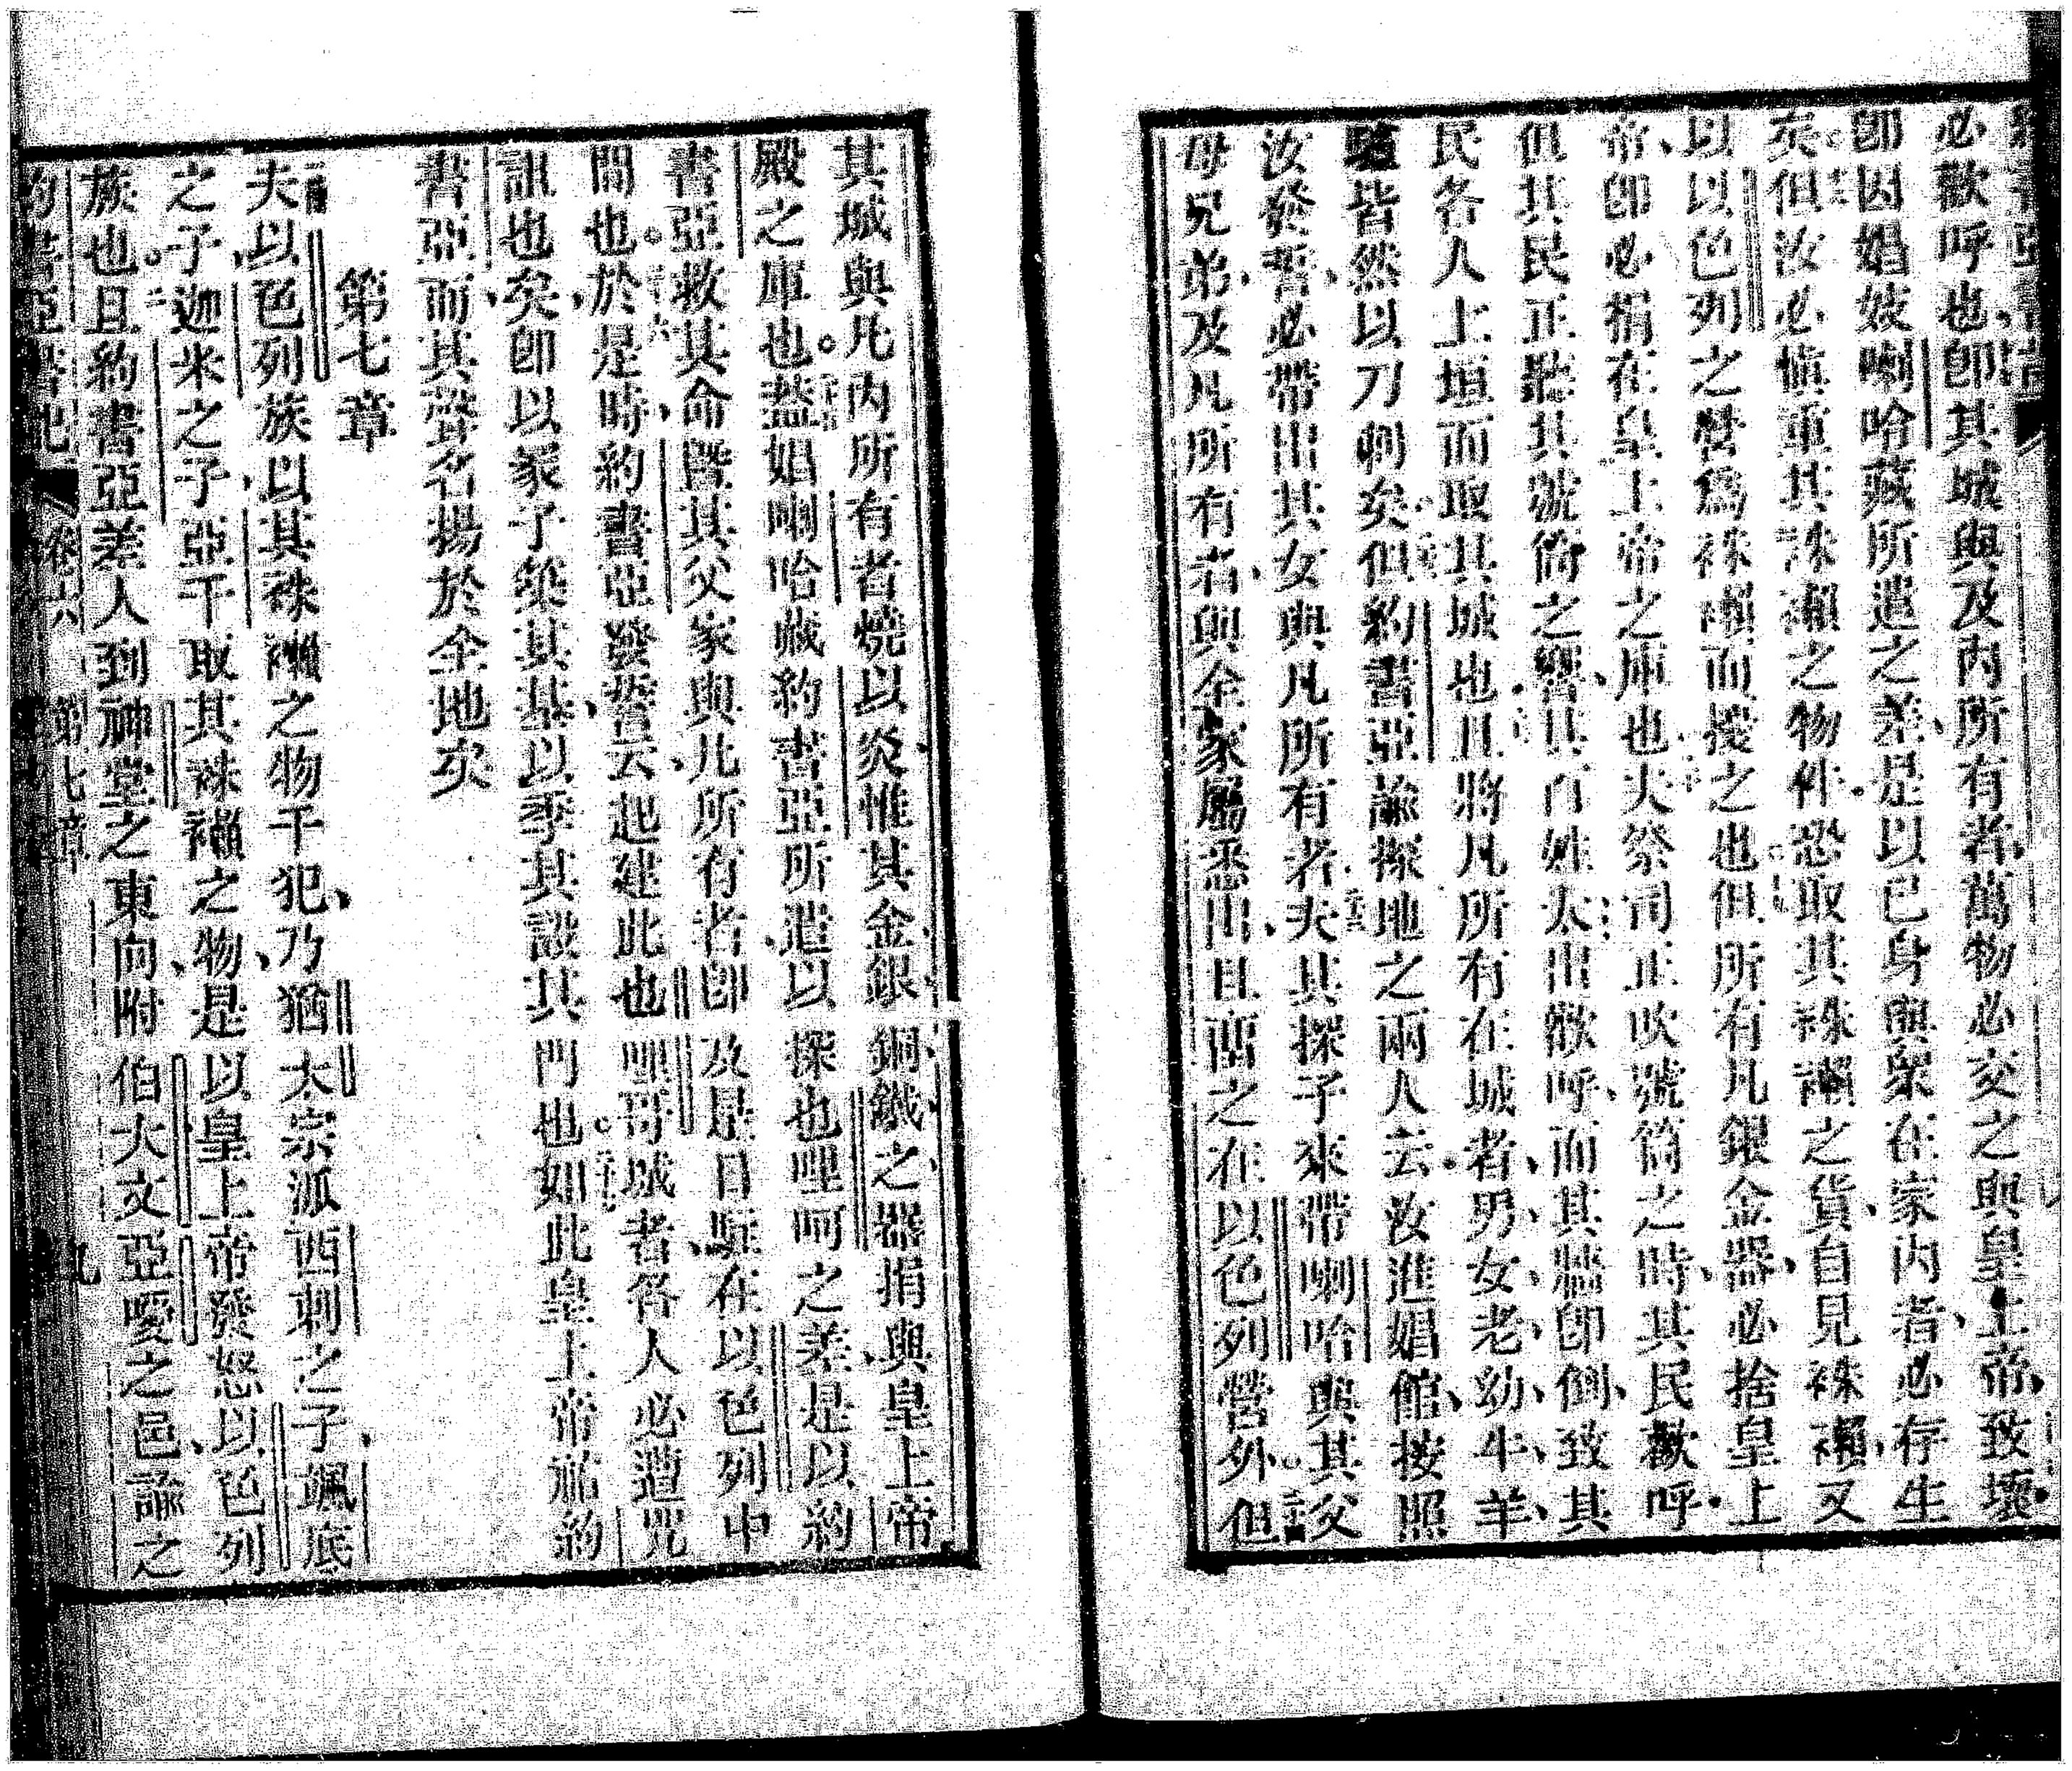 必歡呼也卽其城與及內所有者萬物必交之與皇上帝致壞
卽因娼妓喇哈藏所遣之差是以已身與眾在家內者必存生
矣但汝必愼重其誅襰之物件恐取其誅襰之貨自見誅襰又
以以色列之營爲誅襰而擾之也但所有凡銀金器必捨皇上
帝卽必捐在皇上帝之庫也夫祭司正吹號筒之時其民歡呼
但其民正聽其號筒之聲其百姓太出歡呼而其牆卽倒致其
民各人上垣而取其城也且將凡所有在城者男女老幼牛羊
驢皆然以刀刺矣但約書亞諭探地之兩人云汝進娼館按照
汝發誓必帶出其女與凡所有者夫其探子來帶喇哈與其父
母兄弟及凡所有者與全家屬悉出且畱之在以色列營外但
其城與凡內所有者燒以炎惟其金銀銅鐵之器捐與皇上帝
殿之庫也蓋娼喇哈藏約書亞所遣以探也哩呵之差是以約
書亞救其命曁其父家與凡所有者卽及是日駐在以色列中
間也於是時約書亞發誓云起建此也哩哥城者各人必遭咒
詛也矣卽以冢子築其基以季其設其門也如此皇上帝祐約
書亞而其聲名揚於全地矣
第七章
夫以色列族以其誅襰之物干犯乃猶太宗派西剌之子颯底
之子迦米之子亞干取其誅襰之物是以皇上帝發怒以色列
族也且約書亞差人到神堂之東向附伯大文亞嗳之邑諭之
約書亞書記 卷六 第七章 九